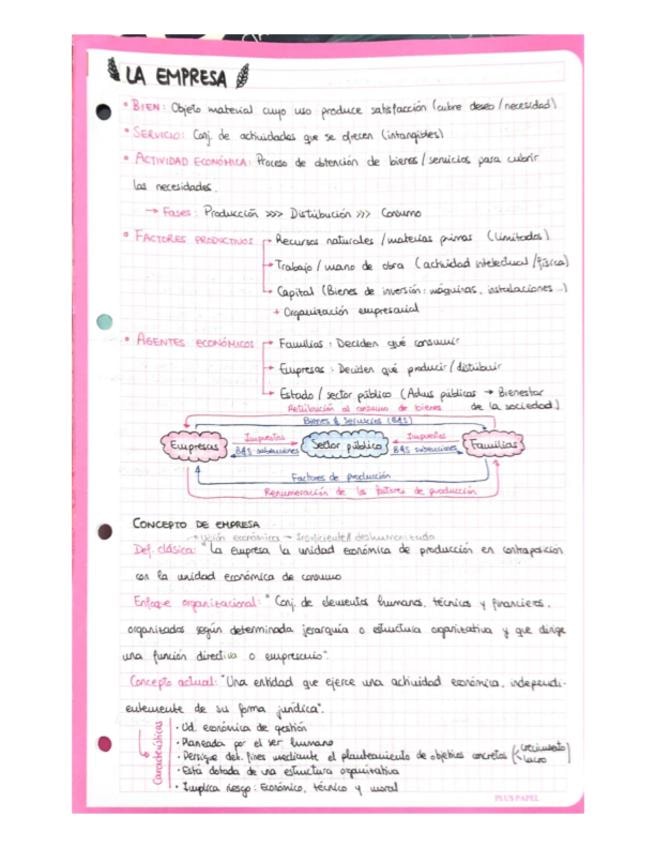 LA EMPRESA
• BIEN: Objeto material cuyo uso produce satisfacción (cubre deseo/necesidad)
• SERVICIO: Conj. de actividades que se ofrecen (intangibles)
• ACTIVIDAD ECONÓMICA: Proceso de obtención de bienes/servicios para cubrir
las necesidades.
→ Fases: Producción >>> Distribución >>> Consumo
• FACTORES PRODUCTIVOS → Recursos naturales/materias primas (limitados)
→ Trabajo/mano de obra (actividad intelectual/física)
→ Capital (Bienes de inversión: máquinas, instalaciones...)
+ Organización empresarial
• AGENTES ECONÓMICOS → Familias: Deciden qué consumir
→ Empresas: Deciden qué producir/distribuir
→ Estado/sector público (Admis públicas → Bienestar
de la sociedad)
Retribución al consumo de bienes
Bienes & Servicios (B&S)
Empresas Impuestos Sector público Impuestos Familias
B&S subvenciones B&S subvenciones
Factores de producción
Remuneración de los factores de producción
CONCEPTO DE EMPRESA
→ Visión económica → Insuficiente/deshumanizada
Def. clásica: "La empresa la unidad económica de producción en contraposición
con la unidad económica de consumo
Enfoque organizacional: "Conj. de elementos humanos, técnicos y financieros,
organizados según determinada jerarquía o estructura organitativa y que dirige
una función directiva o empresario".
Concepto actual: "Una entidad que ejerce una actividad económica, independi-
entemente de su forma jurídica".
Características
• Ud. económica de gestión
• Planeada por el ser humano
• Persigue det. fines mediante el planteamiento de objetivos concretos (crecimiento
lucro)
• Está dotada de una estructura organitativa
• Implica riesgo: Económico, técnico y moral
PLUS PAPEL